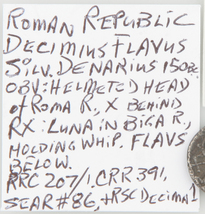 ROMAN REPUBLIC
DECIMIUS FLAVUS
SILV. DENARIUS 150BC
OBV: HELMETED HEAD
OF ROMA R, X BEHIND
RX: LUNA IN BIGA R,
HOLDING WHIP. FLAVS
BELOW.
RRC 207/1. CRR 391,
SEAR #86, + RSC DECIMIA 1